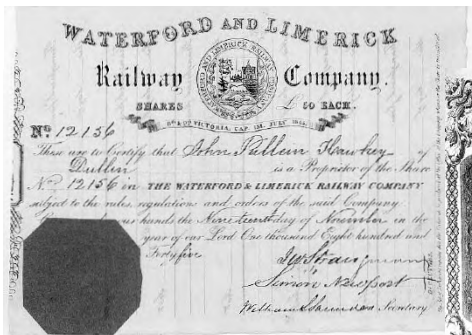 WATERFORD AND LIMERICK
Railway Company.
SHARES £50 EACH.
VICTORIA, CAP. 131. JULY
No 12156
These are to Certify that John Pullein Hawkey of
Dublin is a Proprietor of the Share
No 12156 in THE WATERFORD & LIMERICK RAILWAY COMPANY
subject to the rules, regulations and orders of the said Company.
our hands the Nineteenth day of November in the
year of our Lord One thousand Eight hundred and
Forty five
Simon Newport
William Saunders Secretary